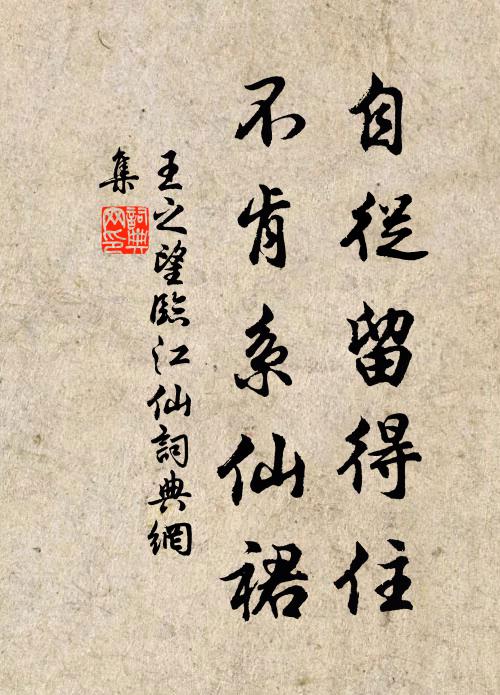 自從留得住
不肯系仙裙
王之望臨江仙詞典網
集
詞典网印